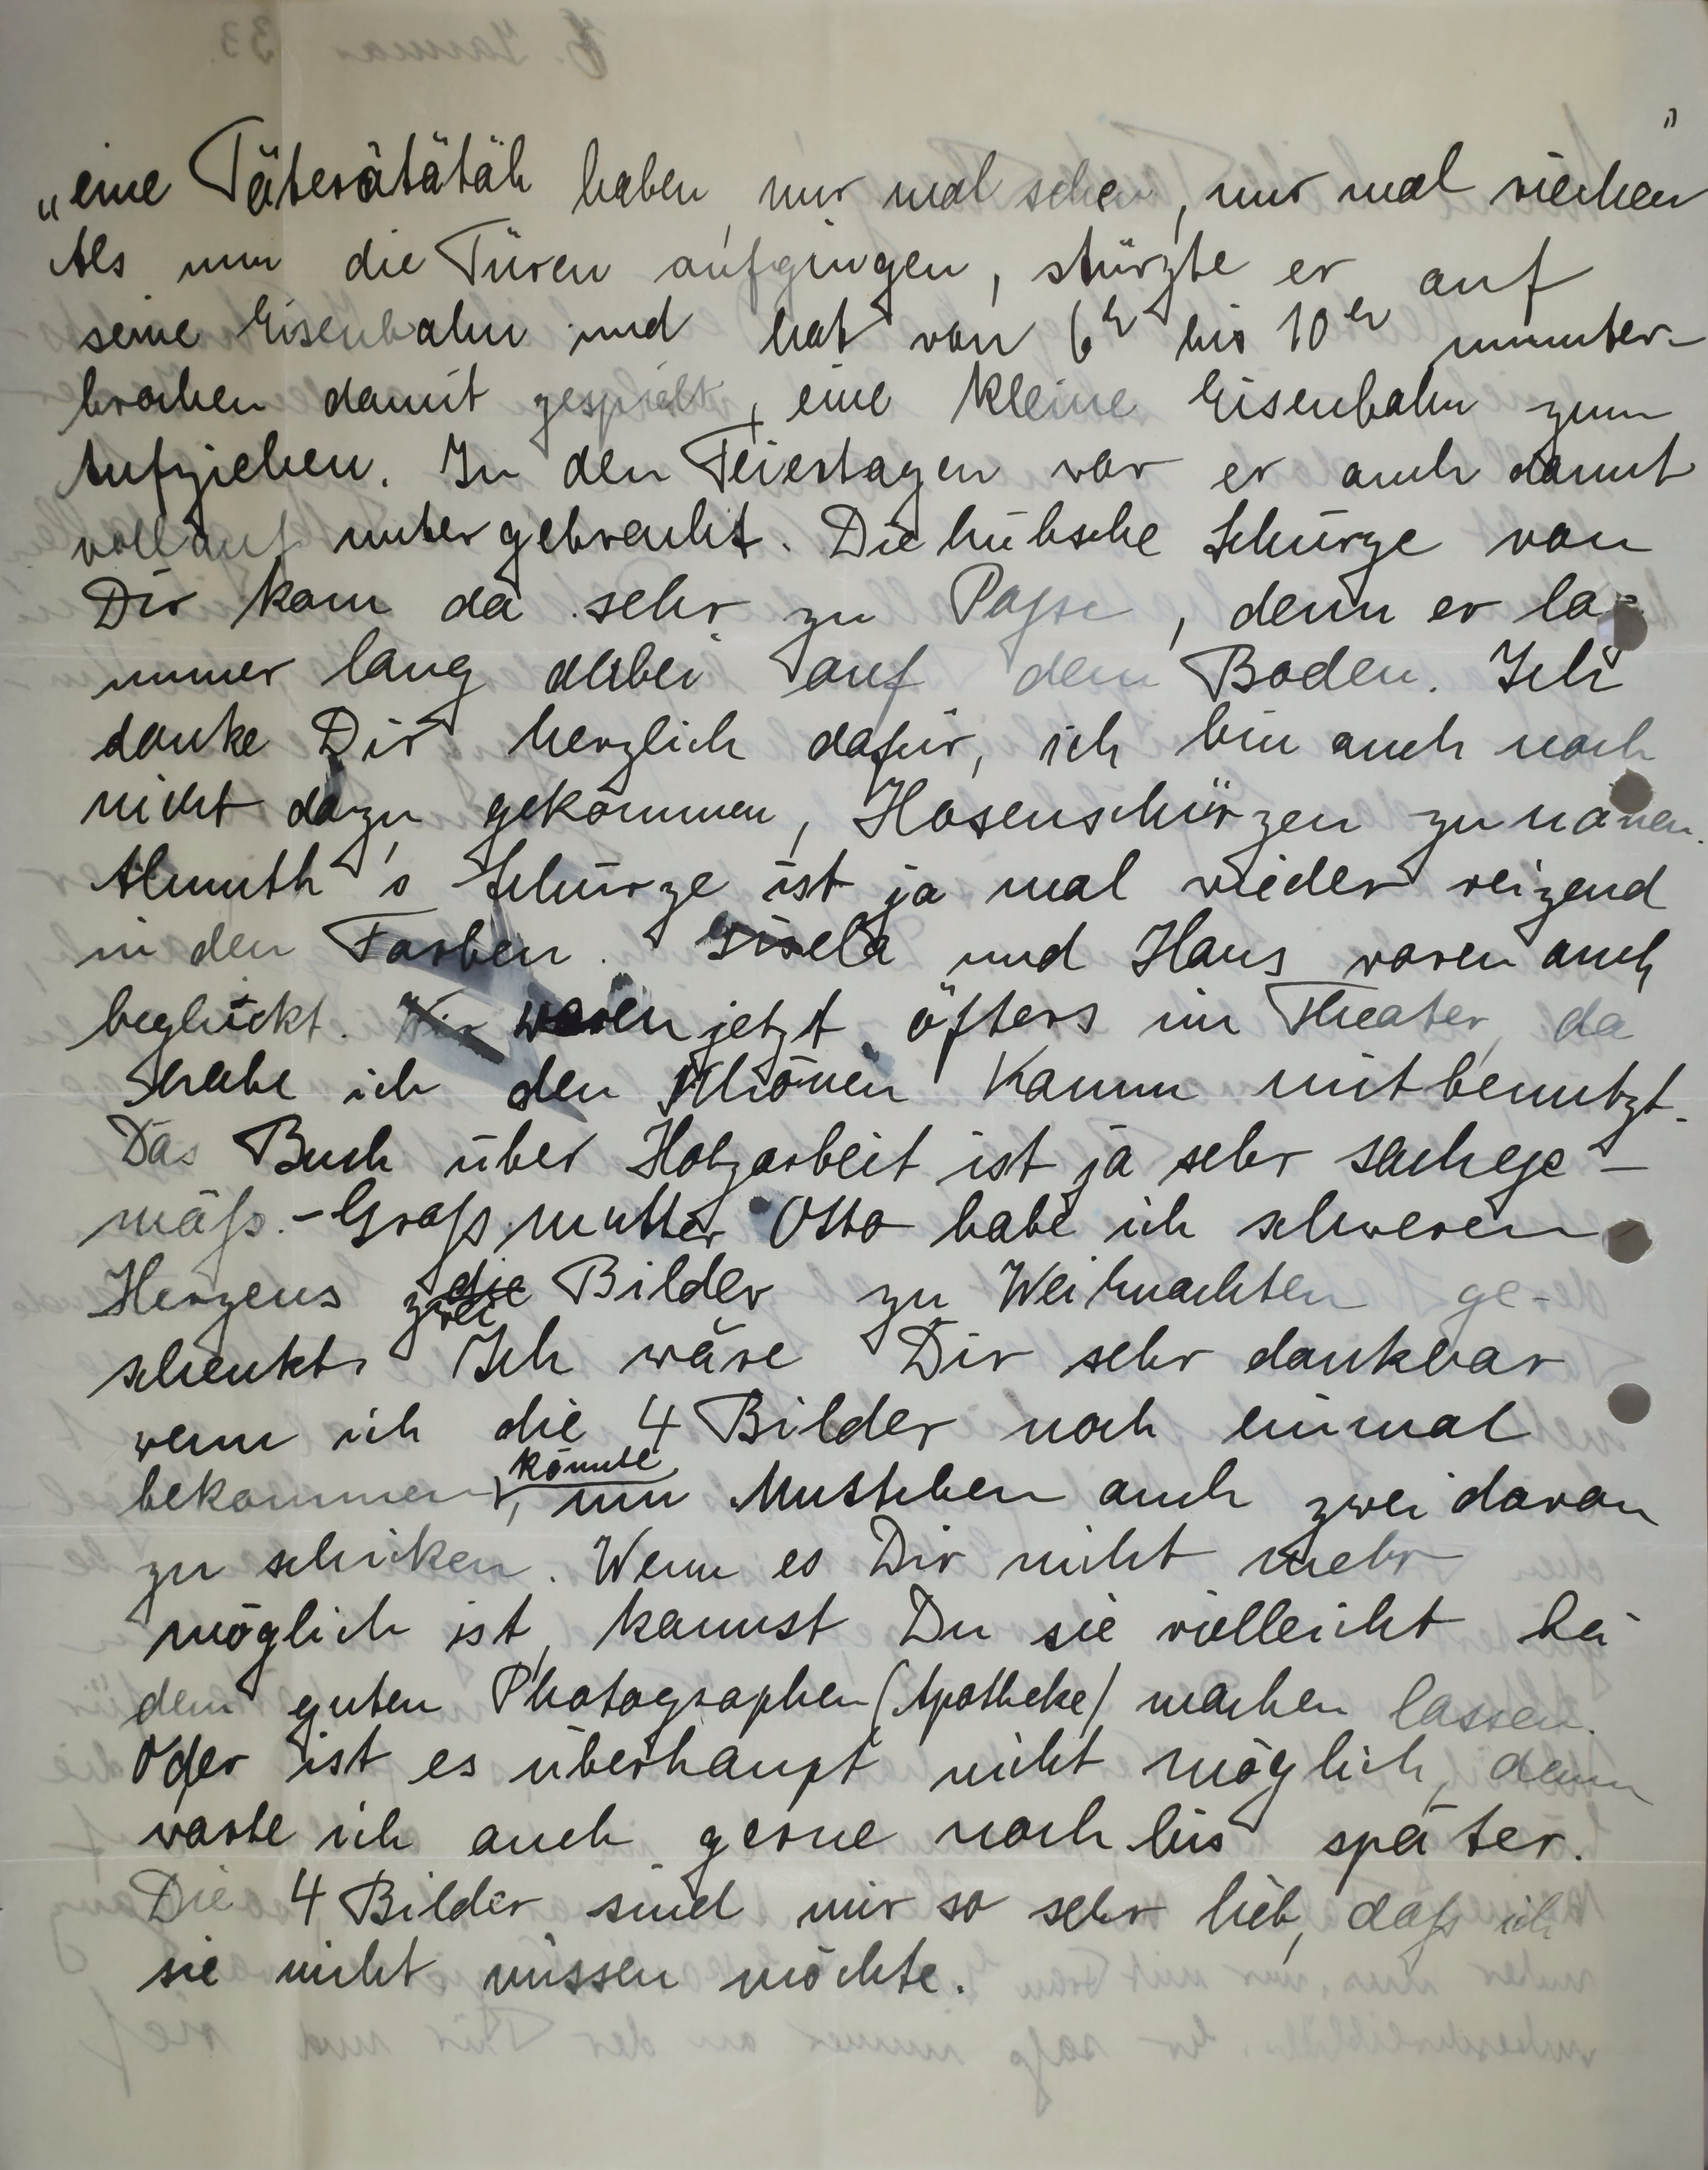 „eine Täterätätäh haben, nur mal sehen, nur mal riechen"
Als nun die Türen aufgingen, stürzte er auf
seine Eisenbahn und hat von 6h bis 10h ununter-
brochen damit gespielt, eine kleine Eisenbahn zum
Aufziehen. In den Feiertagen war er auch damit
vollauf untergebracht. Die hübsche Schürze von
Dir kam da sehr zu Passe, denn er lag
immer lang dabei auf dem Boden. Ich
danke Dir herzlich dafür, ich bin auch noch
nicht dazu gekommen, Hosenschürzen zu nähen.
Almuth's Schürze ist ja mal wieder reizend
in den Farben. Gisela und Hans waren auch
beglückt. Wir waren jetzt öfters im Theater, da
habe ich den schönen Kamm mitbenutzt.
Das Buch über Holzarbeit ist ja sehr sachge-
mäß. - Großmutter Otto habe ich schweren
Herzens zwei die Bilder zu Weihnachten ge-
schenkt. Ich wäre Dir sehr dankbar
wenn ich die 4 Bilder noch einmal
bekommen könnte, um Muttchen auch zwei davon
zu schicken. Wenn es Dir nicht mehr
möglich ist, kannst Du sie vielleicht bei
dem guten Photographen (Apotheke) machen lassen.
Oder ist es überhaupt nicht möglich, dann
warte ich auch gerne noch bis später.
Die 4 Bilder sind mir so sehr lieb, daß ich
sie nicht missen möchte.